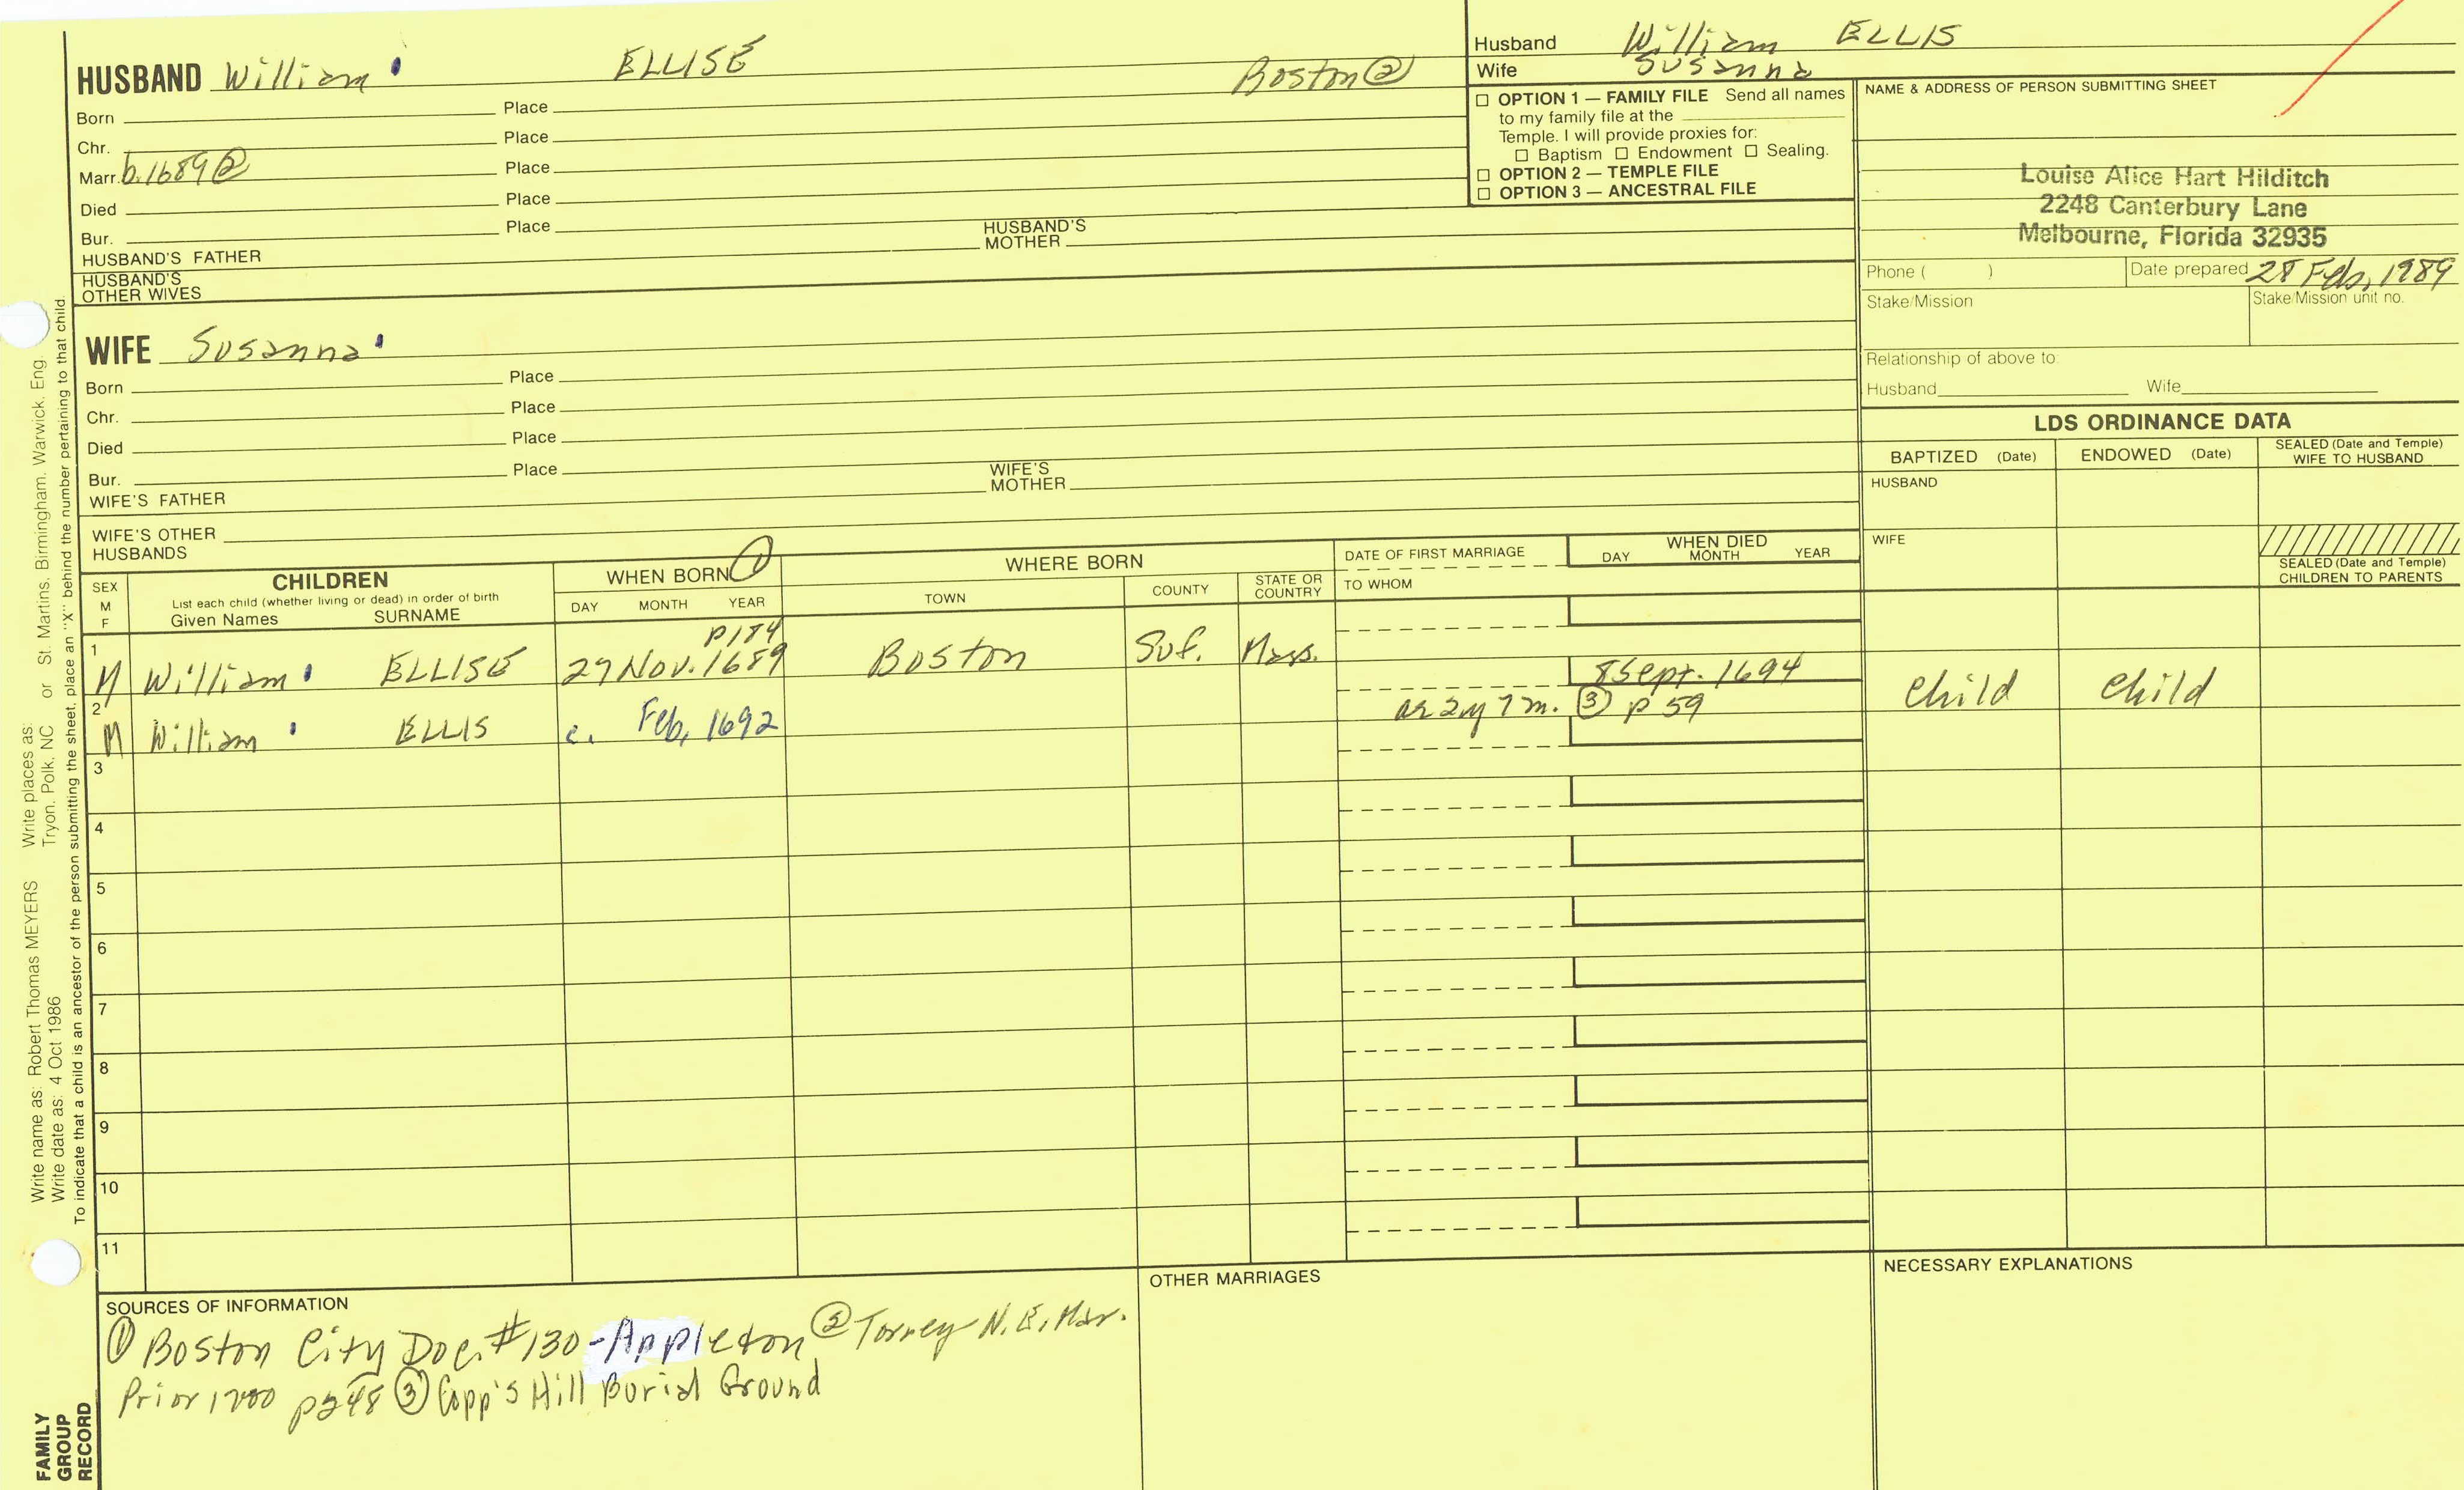 HUSBAND William ELLISE Boston ②
Born Place
Chr. Place
Marr. b. 1689 ② Place
Died Place
Bur. Place
HUSBAND'S FATHER HUSBAND'S MOTHER
HUSBAND'S OTHER WIVES
Husband William ELLIS
Wife Susanna
☐ OPTION 1 — FAMILY FILE Send all names
to my family file at the
Temple. I will provide proxies for:
☐ Baptism ☐ Endowment ☐ Sealing.
☐ OPTION 2 — TEMPLE FILE
☐ OPTION 3 — ANCESTRAL FILE
NAME & ADDRESS OF PERSON SUBMITTING SHEET
Louise Alice Hart Hilditch
2248 Canterbury Lane
Melbourne, Florida 32935
Phone ( ) Date prepared 28 Feb, 1989
Stake/Mission Stake/Mission unit no.
Relationship of above to:
Husband Wife
WIFE Susanna
Born Place
Chr. Place
Died Place
Bur. Place
WIFE'S FATHER WIFE'S MOTHER
WIFE'S OTHER HUSBANDS
LDS ORDINANCE DATA
BAPTIZED (Date) ENDOWED (Date) SEALED (Date and Temple) WIFE TO HUSBAND
HUSBAND
WIFE
SEALED (Date and Temple) CHILDREN TO PARENTS
SEX M F
CHILDREN
List each child (whether living or dead) in order of birth
Given Names SURNAME
WHEN BORN ①
DAY MONTH YEAR
WHERE BORN
TOWN COUNTY STATE OR COUNTRY
DATE OF FIRST MARRIAGE
TO WHOM
WHEN DIED
DAY MONTH YEAR
p184
1 M William ELLISE 27 Nov. 1689 Boston Suf. Mass.
8 Sept. 1694
2 M William ELLIS c. Feb, 1692 ae 2y 7m. ③ p 59 Child Child
3
4
5
6
7
8
9
10
11
SOURCES OF INFORMATION
① Boston City Doc. #130 - Appleton ② Torrey N.E. Mar.
Prior 1700 p248 ③ Copp's Hill Burial Ground
OTHER MARRIAGES
NECESSARY EXPLANATIONS
Write name as: Robert Thomas MEYERS Write places as:
Write date as: 4 Oct 1986 Tryon, Polk, NC or St. Martins, Birmingham, Warwick, Eng.
To indicate that a child is an ancestor of the person submitting the sheet, place an "X" behind the number pertaining to that child.
FAMILY
GROUP
RECORD